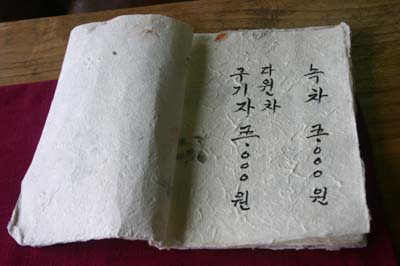 녹차 5000원
다원차
구기자 5000원